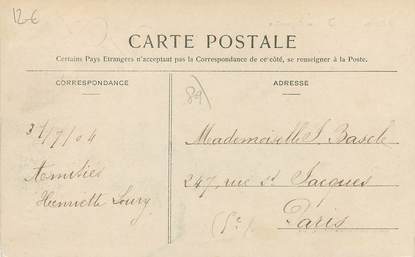 12€
CARTE POSTALE
Certains Pays Etrangers n'acceptant pas la Correspondance de ce côté, se renseigner à la Poste.
CORRESPONDANCE
ADRESSE
(89)
31/7/04
Amitiés
Henriette Loury
Mademoiselle S. Bascle
247, rue St Jacques
(5e) Paris